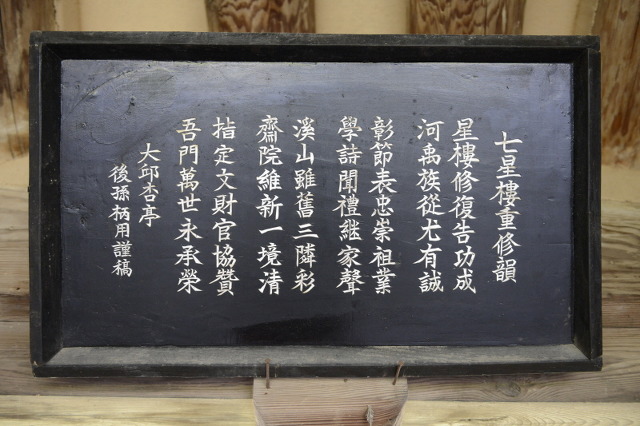 七星樓重修韻
星樓修復告功成
河禹族從尤有誠
彰節表忠崇祖業
學詩聞禮継家聲
溪山雖舊三隣彩
齋院維新一境清
指定文財官協贊
吾門萬世永承榮
大邱杏亭
後孫柄用謹稿